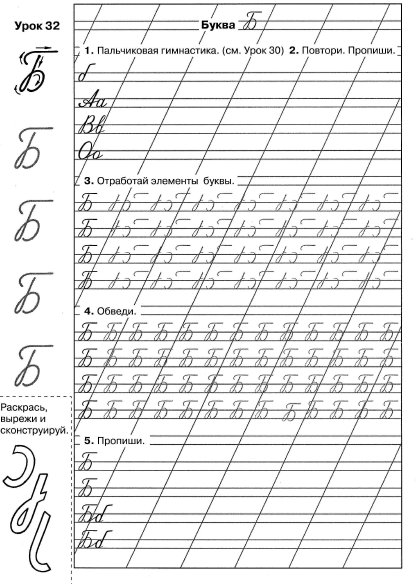 Урок 32
Буква Б
1. Пальчиковая гимнастика. (см. Урок 30) 2. Повтори. Пропиши.
Б
б
Аа
Б
Вв
Оо
3. Отработай элементы буквы.
Б
Б
Б
Б
Б
Б
4. Обведи.
Б
Б Б Б Б Б Б Б Б Б Б Б Б Б
Б Б Б Б Б Б Б Б Б Б Б Б Б
Б Б Б Б Б Б Б Б Б Б Б Б Б
Б Б Б Б Б Б Б Б Б Б Б Б Б
Раскрась,
вырежи и
сконструируй.
5. Пропиши.
Б
Б
Бб
Бб